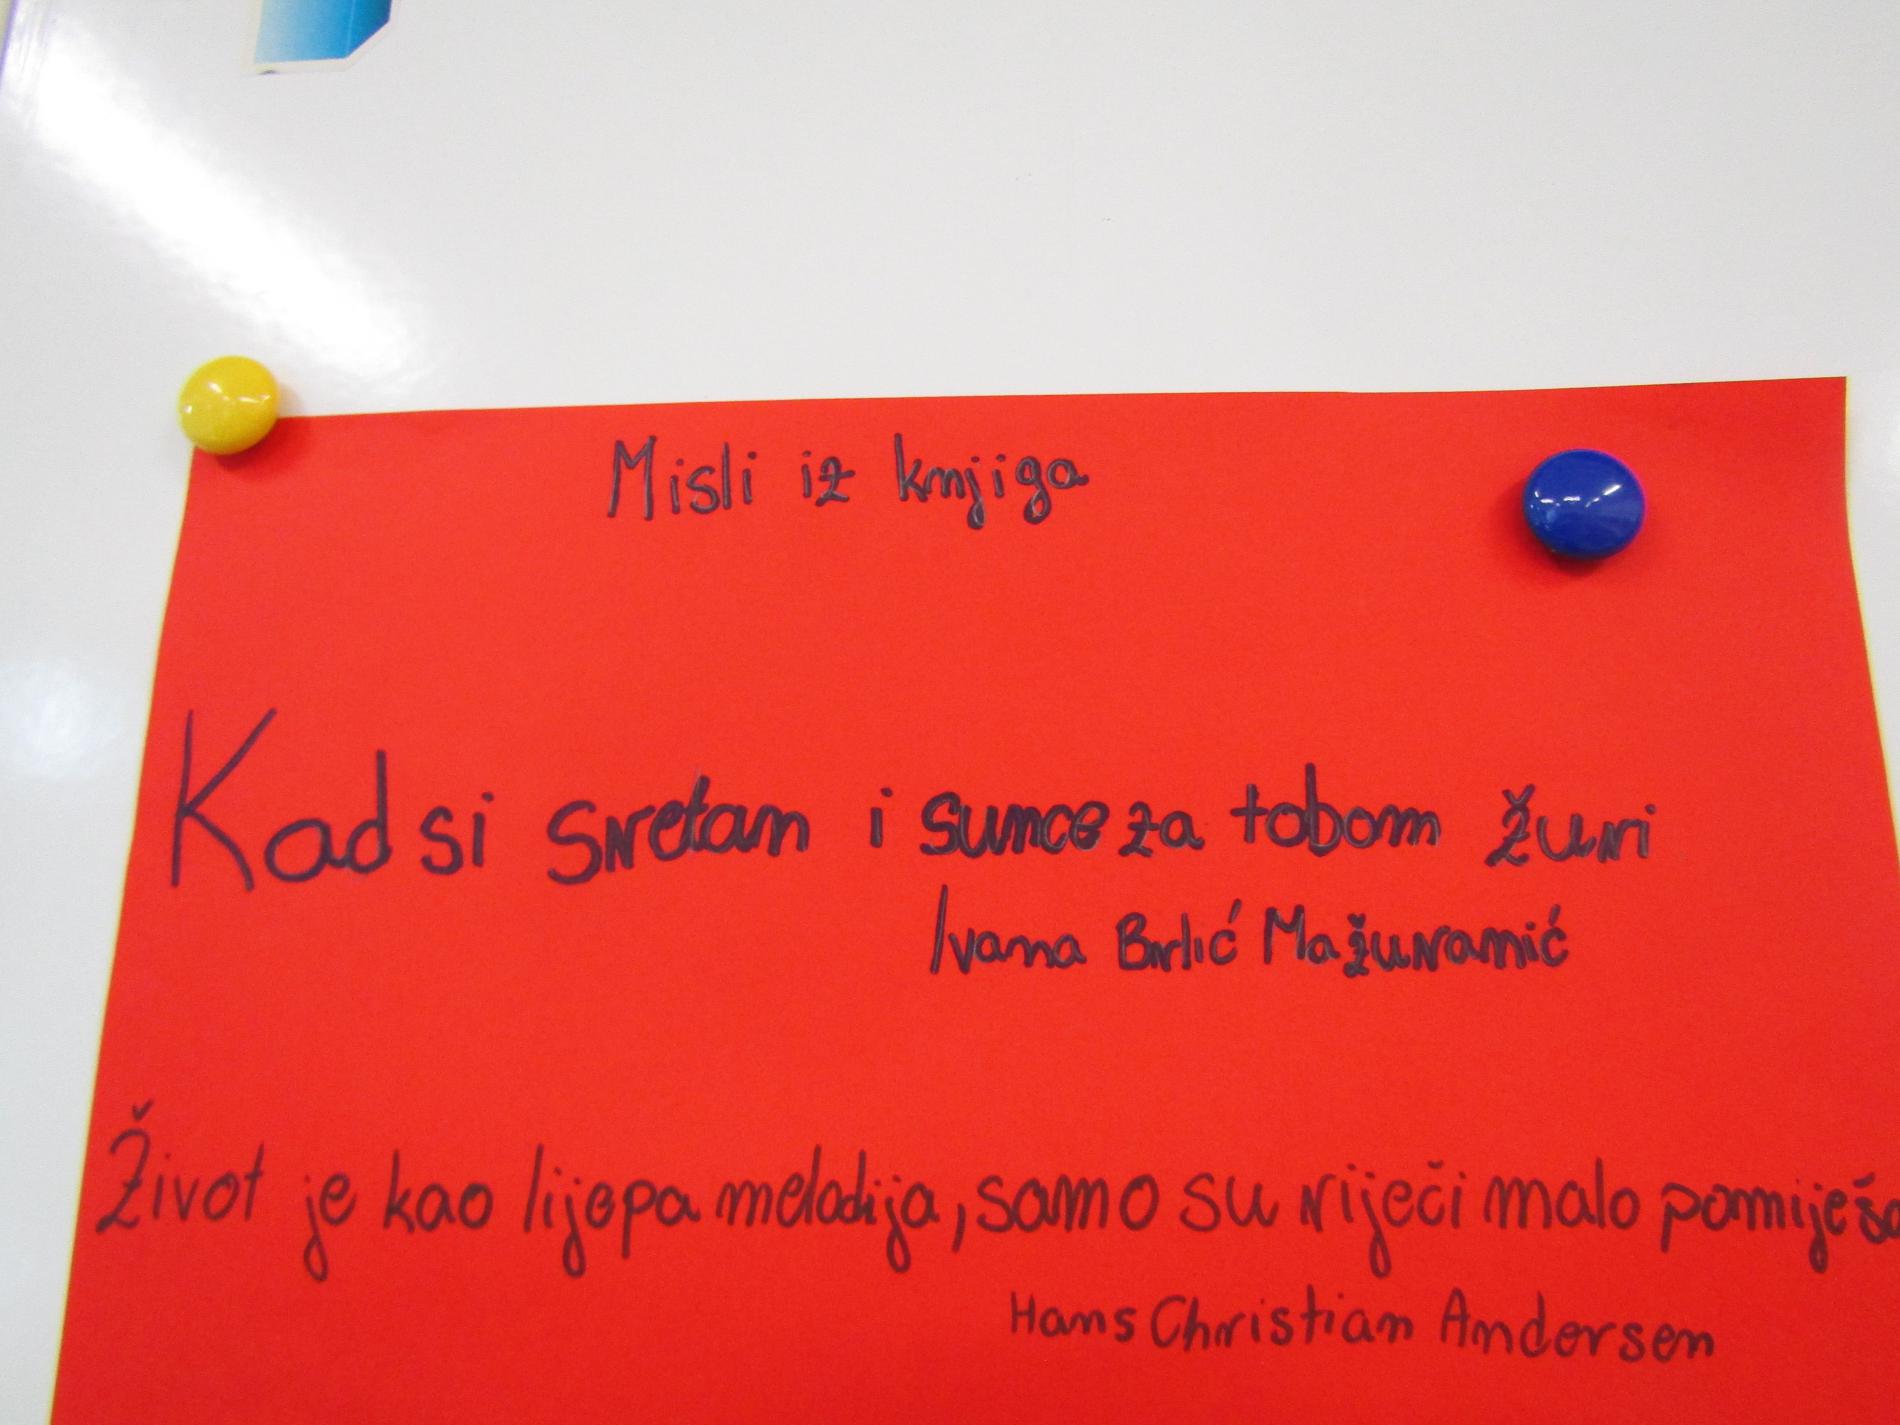 Misli iz knjiga
Kad si sretan i sunce za tobom žuri
Ivana Brlić Mažuranić
Život je kao lijepa melodija, samo su riječi malo pomiješa
Hans Christian Andersen